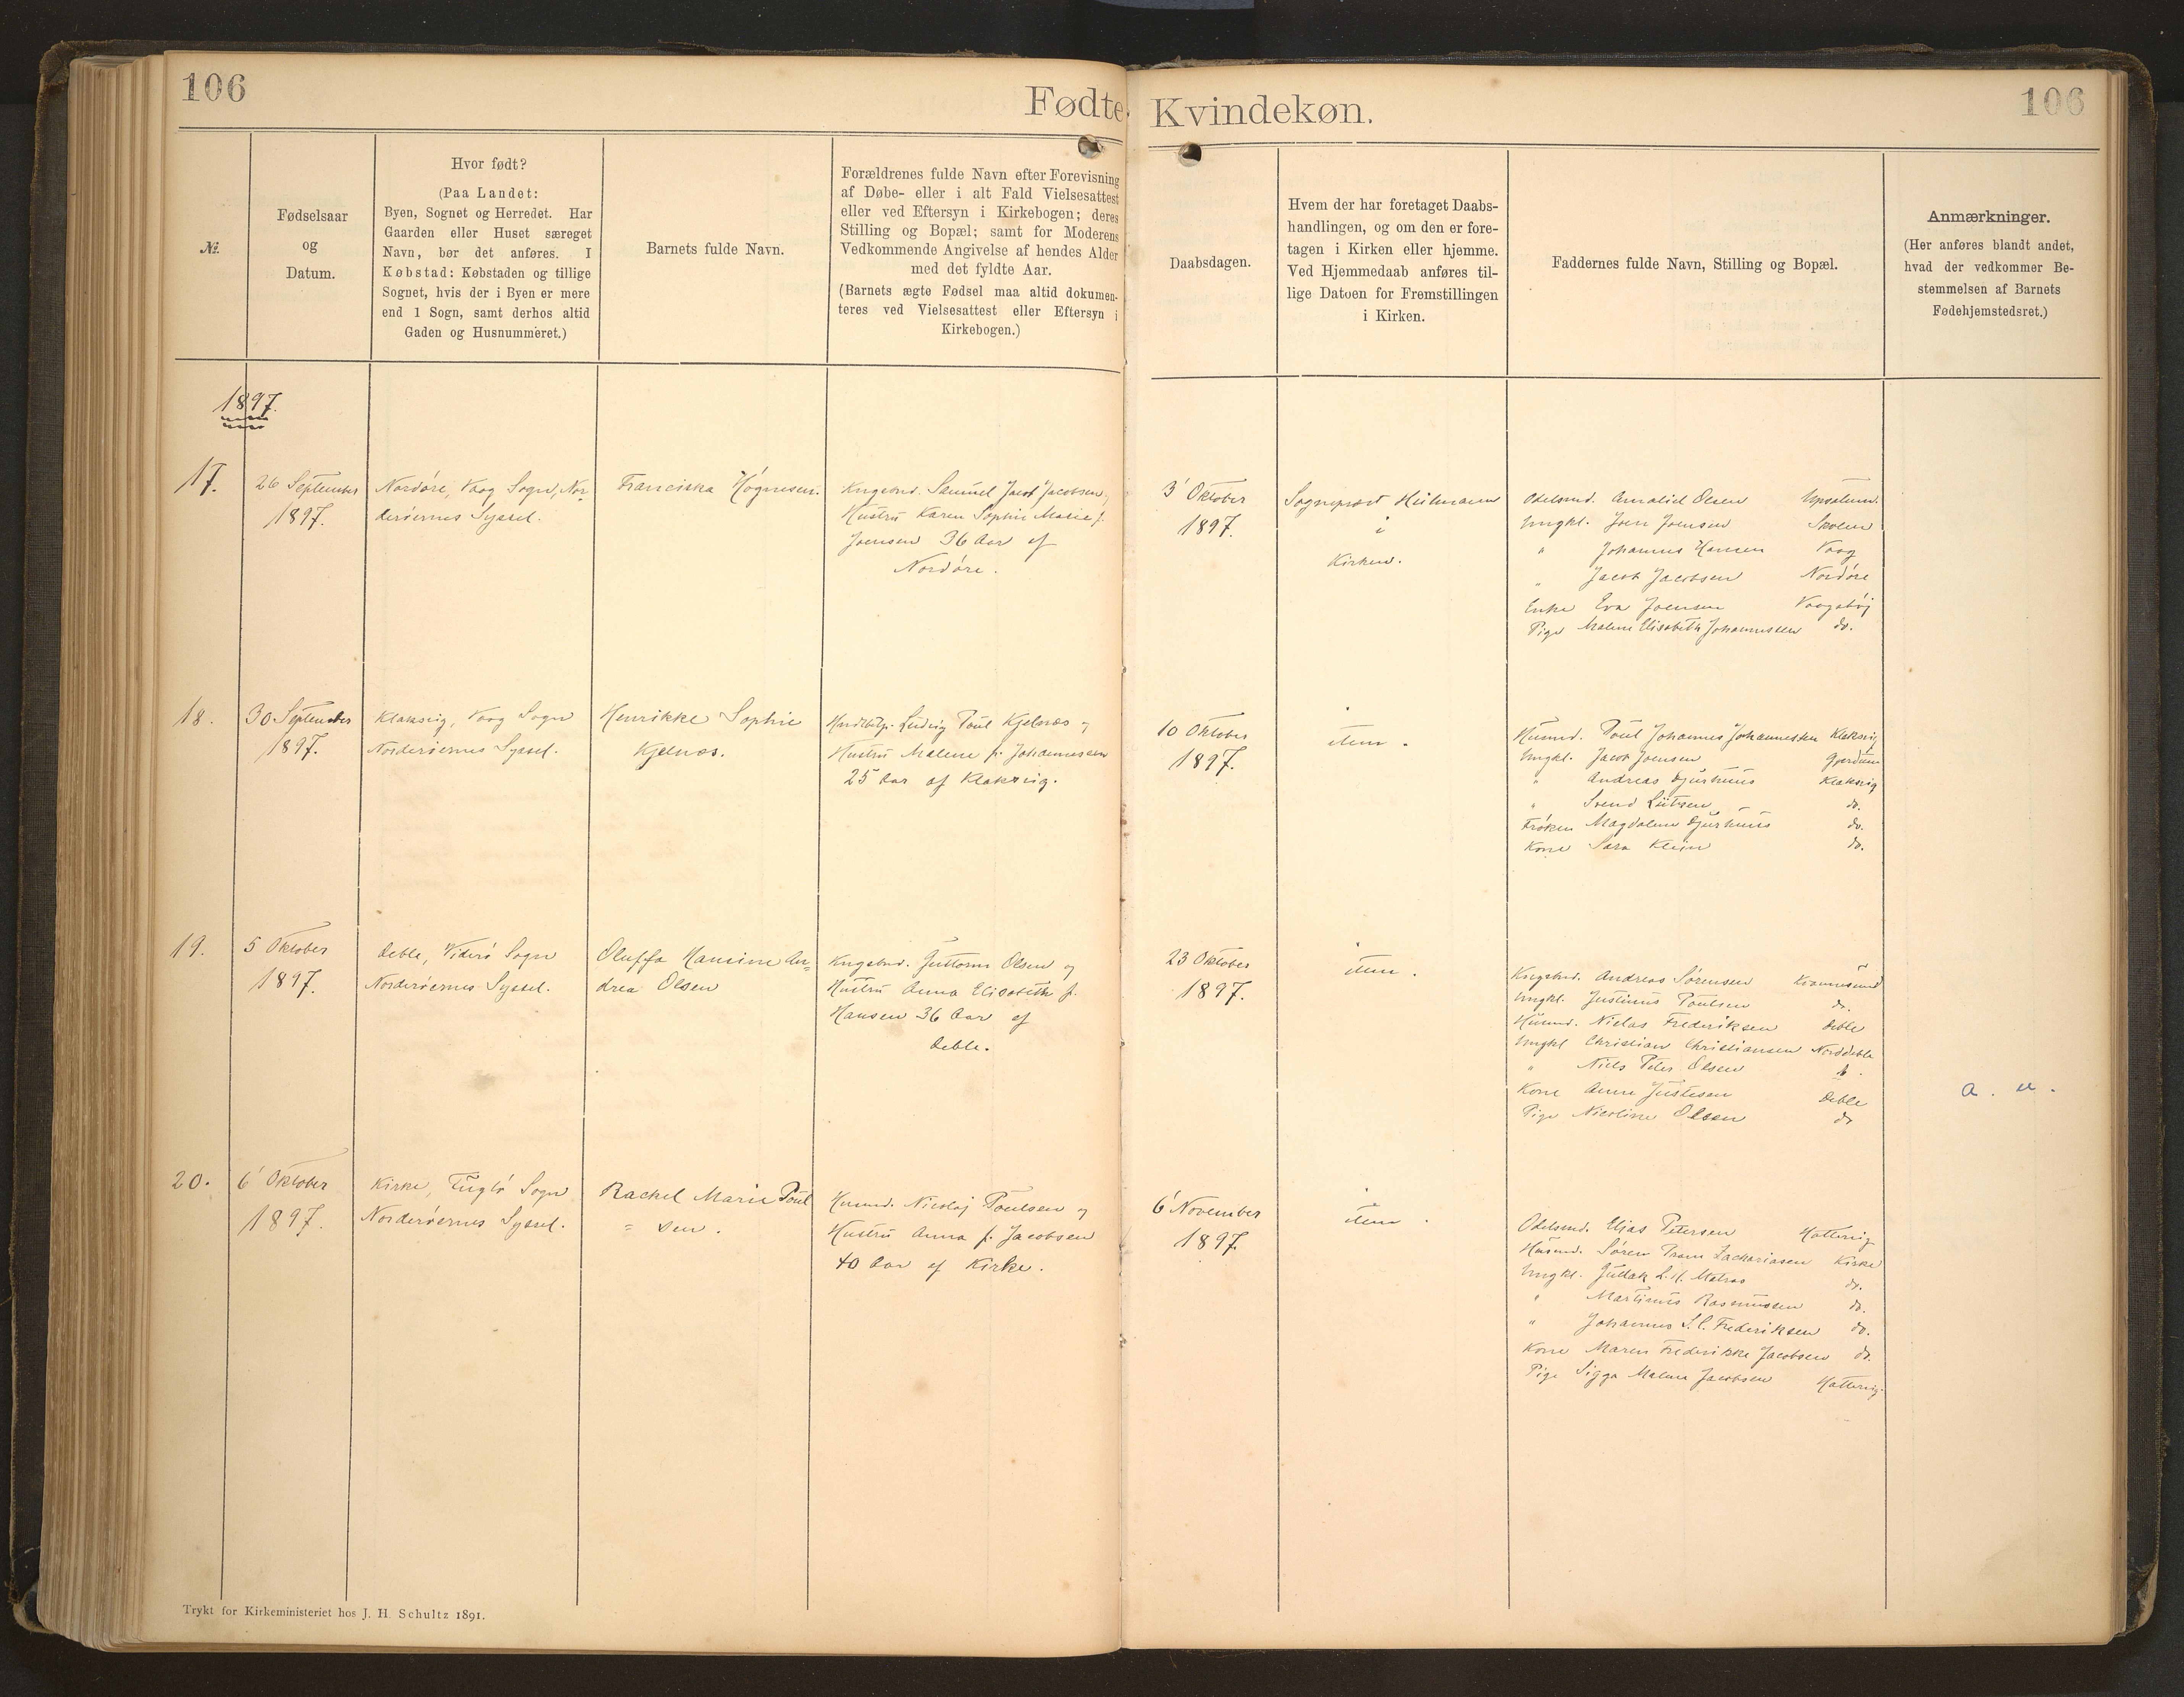 106
Fødte Kvindekøn.
106
№
Fødselsaar
og
Datum.
Hvor født?
(Paa Landet:
Byen, Sognet og Herredet. Har
Gaarden eller Huset særeget
Navn, bør det anføres. I
Købstad: Købstaden og tillige
Sognet, hvis der i Byen er mere
end 1 Sogn, samt derhos altid
Gaden og Husnummeret.)
Barnets fulde Navn.
Forældrenes fulde Navn efter Forevisning
af Døbe- eller i alt Fald Vielsesattest
eller ved Eftersyn i Kirkebogen; deres
Stilling og Bopæl; samt for Moderens
Vedkommende Angivelse af hendes Alder
med det fyldte Aar.
(Barnets ægte Fødsel maa altid dokumen-
teres ved Vielsesattest eller Eftersyn i
Kirkebogen.)
Daabsdagen.
Hvem der har foretaget Daabs-
handlingen, og om den er fore-
tagen i Kirken eller hjemme.
Ved Hjemmedaab anføres til-
lige Datoen for Fremstillingen
i Kirken.
Faddernes fulde Navn, Stilling og Bopæl.
Anmærkninger.
(Her anføres blandt andet,
hvad der vedkommer Be-
stemmelsen af Barnets
Fødehjemstedsret.)
1897.
17.
26 September
1897.
Nordøre, Vaag Sogn, Nor
derøernes Syssel.
Franciska Høgnesen.
Kngsbnd. Samuel Jacob Jacobsen,
Hustru Karen Sophie Marie f.
Joensen 36 Aar af
Nordøre.
3' Oktober
1897.
Sognepræst Heilmann
i
Kirken.
Odelsmd. Olsen
Ungkl. Joen Joensen Skolen
" Johannes Hansen Vaag
" Jacob Jacobsen Nordøre
Enke Eva Joensen Vaagsbøj
Pige Malene Elisabeth Johannessen do.
18.
30 September
1897.
Klaksvig, Vaag Sogn
Norderøernes Syssel.
Henrikke Sophie
Kjelnæs.
Ludvig Poul Kjelnæs og
Hustru Malene f. Johannessen
25 Aar af Klaksvig.
10 Oktober
1897.
item.
Husmd. Poul Johannes Johannessen Klaksvig
Ungkl. Jacob Joensen Gjerdum
" Andreas Djurhuus Klaksvig
" Svend Lützen do.
Frøken Magdalene Djurhuus do.
Kone Sara Klein do.
19.
5 Oktober
1897.
Deble, Viderø Sogn
Norderøernes Syssel.
Oluffa Hansine An=
drea Olsen
Kngsbnd. Guttorm Olsen og
Hustru Anna Elisabeth f.
Hansen 36 Aar af
Deble.
23 Oktober
1897.
item.
Kngsbnd. Andreas Sørensen Kvannesund
Ungkl. Justinus Poulsen do.
Husmd. Niclas Frederiksen Deble
Ungkl Christian Christiansen Norddeble
" Niels Peter Olsen do.
Kone Anne Justesen Deble
Pige Nicoline Olsen do
a. u.
20.
6' Oktober
1897.
Kirke, Fuglø Sogn
Norderøernes Syssel.
Rachel Marie Poul
= sen.
Husmd. Nicolaj Poulsen og
Hustru Anna f. Jacobsen
40 Aar af Kirke.
6' November
1897.
item.
Odelsmd. Elias Petersen Hattervig
Husmd. Søren Pram Zachariasen Kirke
Ungkl. Gullak L. H. Matras do.
" Martinus Rasmussen do.
" Johannes S. C. Frederiksen do.
Kone Maren Frederikke Jacobsen do.
Pige Sigga Malene Jacobsen Hattervig.
Trykt for Kirkeministeriet hos J. H. Schultz 1891.